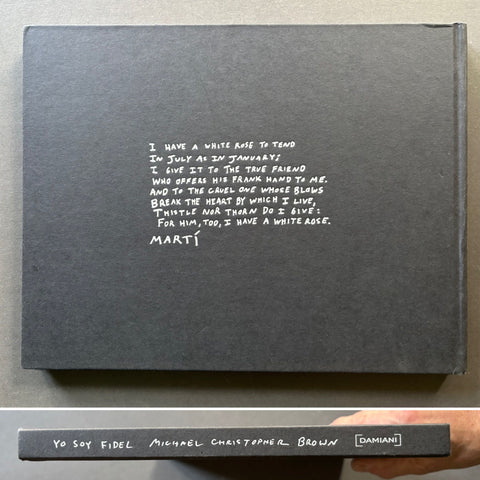 I HAVE A WHITE ROSE TO TEND
IN JULY AS IN JANUARY;
I GIVE IT TO THE TRUE FRIEND
WHO OFFERS HIS FRANK HAND TO ME.
AND TO THE CRUEL ONE WHOSE BLOWS
BREAK THE HEART BY WHICH I LIVE,
THISTLE NOR THORN DO I GIVE:
FOR HIM, TOO, I HAVE A WHITE ROSE.
MARTÍ
YO SOY FIDEL MICHAEL CHRISTOPHER BROWN [DAMIANI]